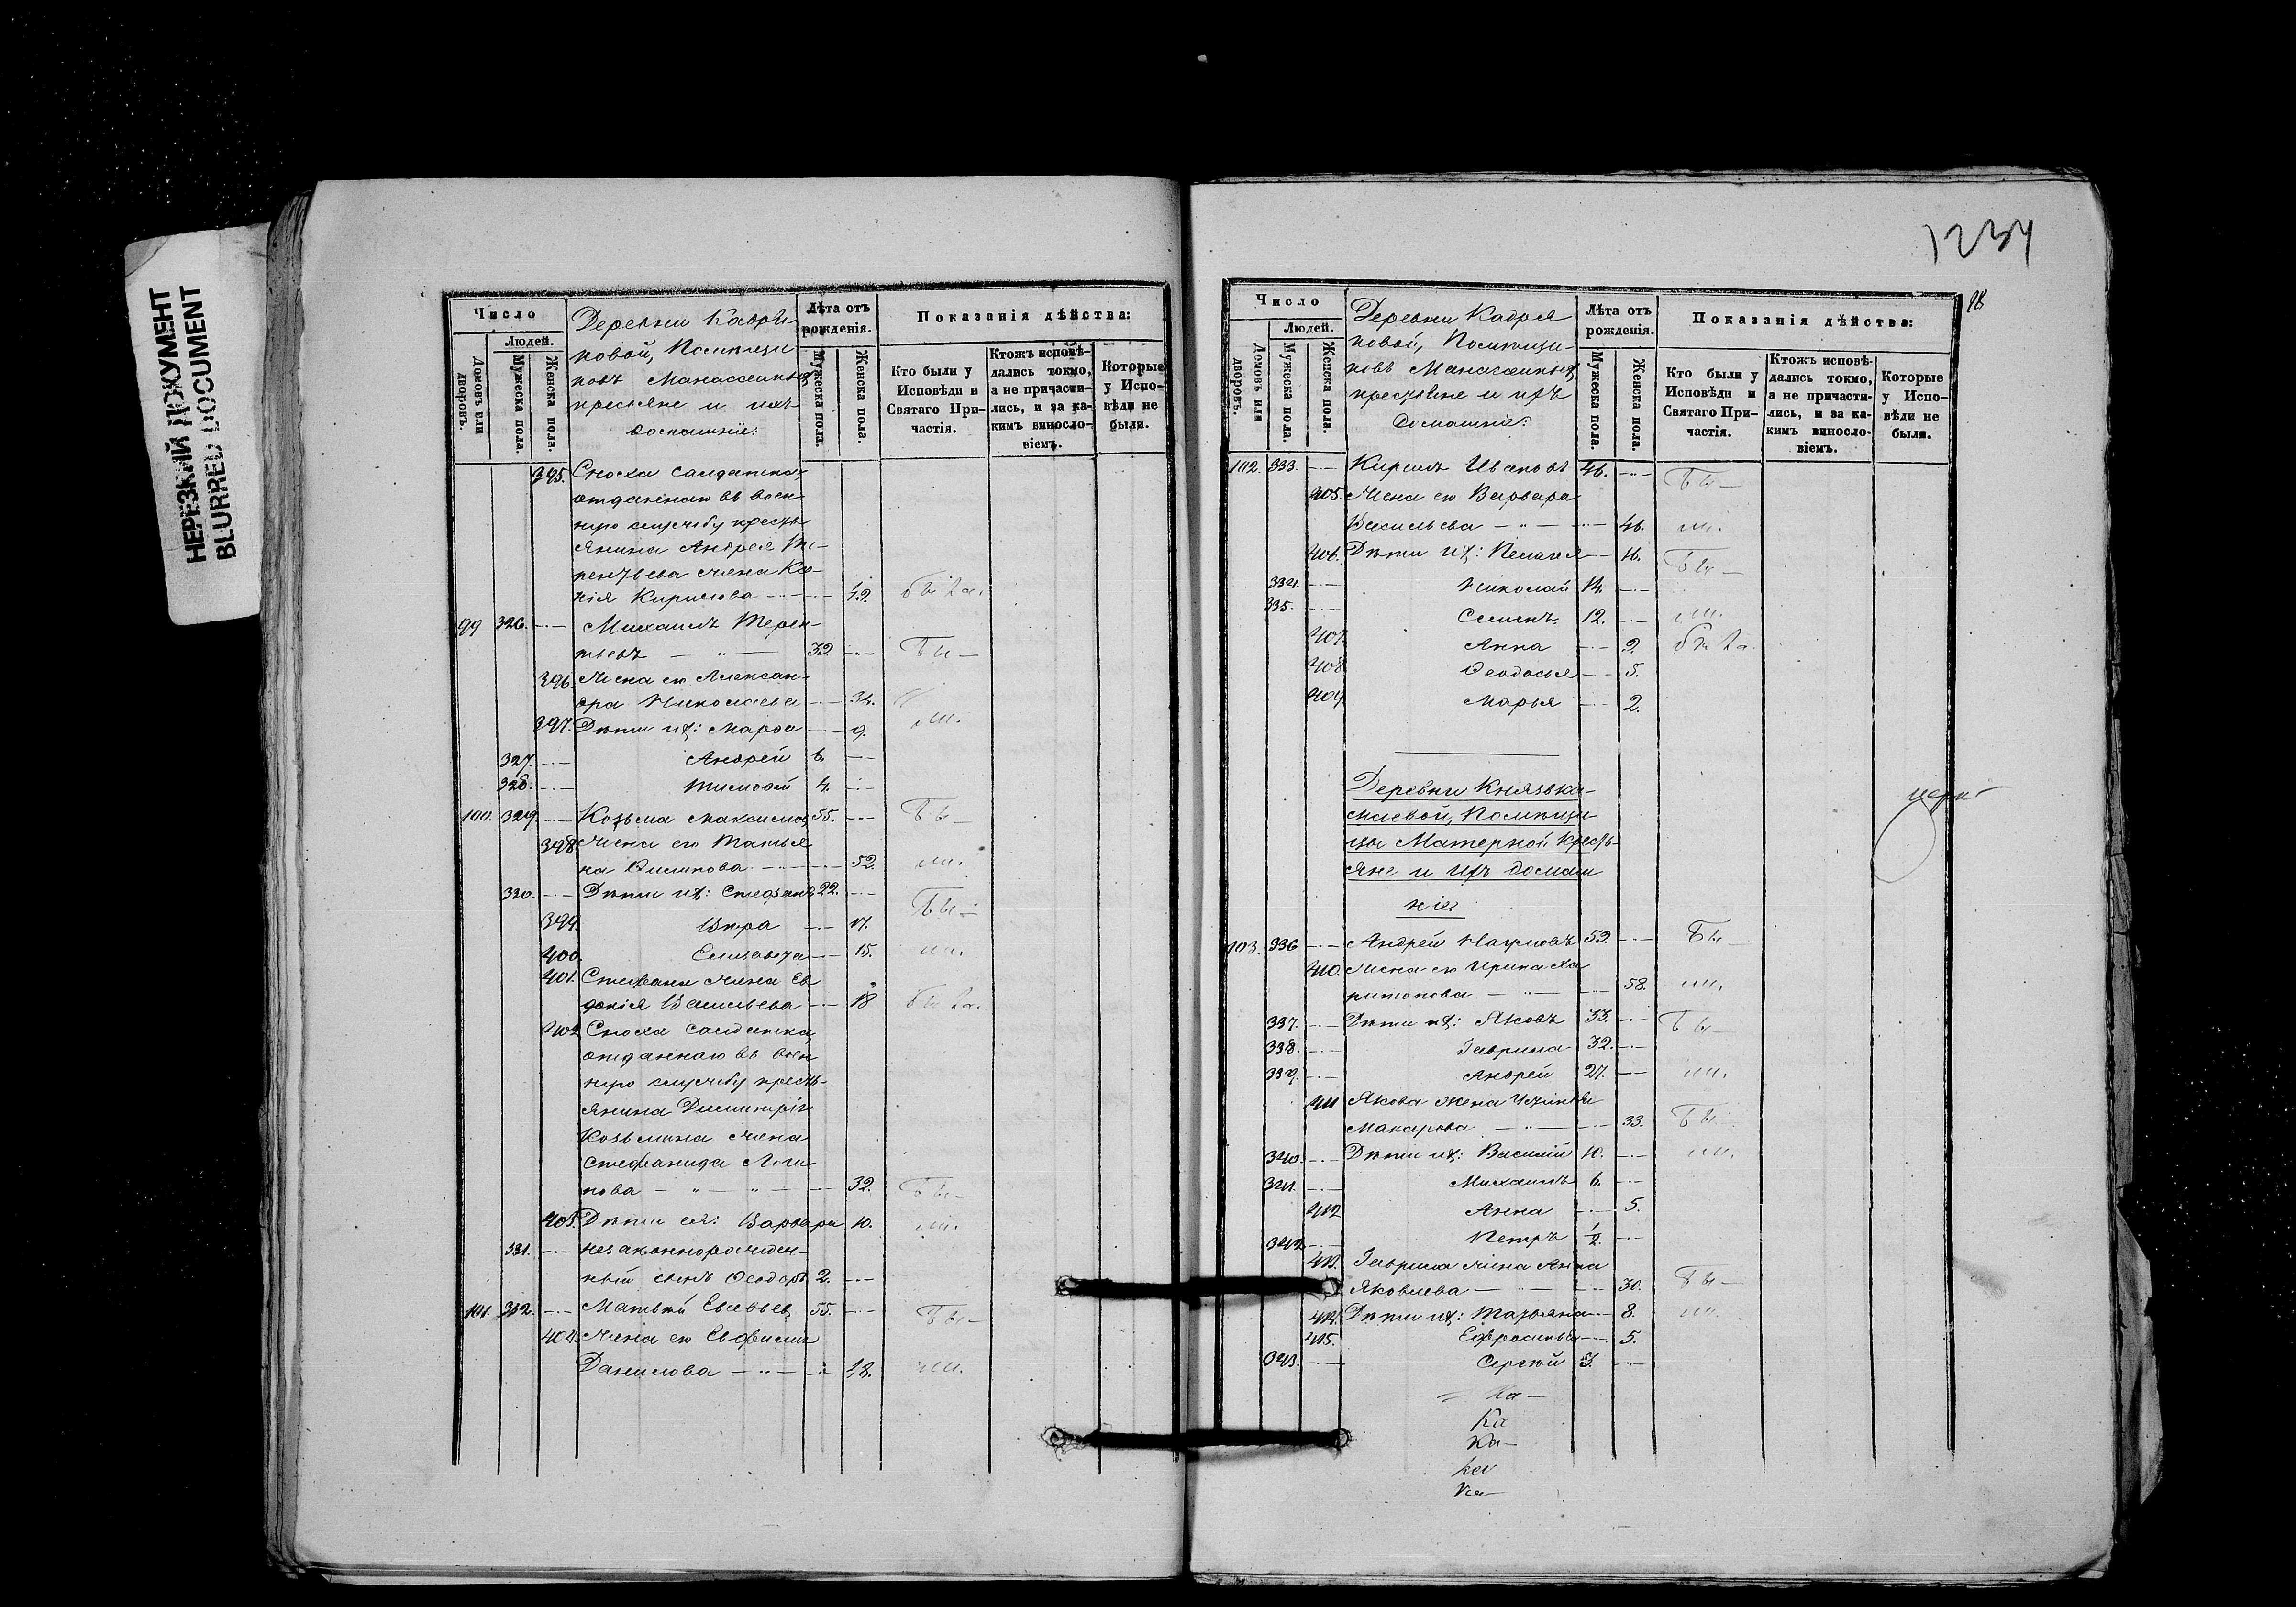 НЕРЕЗКИЙ ДОКУМЕНТ
BLURRED DOCUMENT
Число
Людей.
Домовъ или дворовъ.
Мужеска пола.
Женска пола.
Деревни
новой, Помѣщи
ковъ
крестьяне и ихъ
домашніе:
Лѣта отъ рожденія.
Мужеска пола.
Женска пола.
Показанія дѣйства:
Кто были у Исповѣди и Святаго Причастія.
Ктожъ исповѣдались токмо, а не причастились, и за какимъ винословіемъ.
Которые у Исповѣди не были.
395. Сноха салдатка,
отданнаго въ воен
ную службу кресть
янина Андрея Те-
рентьева жена Ксе-
нія Кирилова была
99 326. Михаилъ Терен-
тьевъ 32. Бы-
396. Жена его Алексан-
дра Николаева 34.
397. Дѣти ихъ: Марѳа 9. ли.
327. Андрей 6.
328. Тимоѳей 4.
100. 329. Козьма Максимовъ 55. Бы-
398 Жена его Татья
на Филипова 52. ли.
330. Дѣти ихъ: Стефанъ 22. Бы-
399. Вѣра 17.
400. Елизавета 15. ли.
401. Стефана жена Ев
докія Васильева 18 была.
402 Сноха салдатка,
отданнаго въ воен
ную службу кресть-
янина Димитрія
Козьмина жена
Стефанида Логи
нова 32. Бы-
403. Дѣти ея: Варвара 10. ли.
331. незаконнорожден-
ный сынъ Ѳеодоръ 2.
101. 332. Матвѣй Евсевьевъ 55. Бы-
404. Жена его Евфимія
Данилова 48. ли.
1234
98
Число
Людей.
Домовъ или дворовъ.
Мужеска пола.
Женска пола.
Деревни
новой, Помѣщи-
ковъ
крестьяне и ихъ
домашніе:
Лѣта отъ рожденія.
Мужеска пола.
Женска пола.
Показанія дѣйства:
Кто были у Исповѣди и Святаго Причастія.
Ктожъ исповѣдались токмо, а не причастились, и за какимъ винословіемъ.
Которые у Исповѣди не были.
102. 333. Кирилъ Ивановъ 46. Бы-
405. Жена его Варвара
Васильева 46. ли.
406. Дѣти ихъ: Пелагея 16. Бы-
334. Николай 14.
335. Семенъ 12. ли.
407. Анна 9. была.
408 Ѳеодосья 5.
409 Марья 2.
Деревни
Помѣщи-
цы Матерной кресть-
яне и ихъ домаш
ніе
103. 336 Андрей Наумовъ 59. Бы-
410. Жена его Ирина Ха
ритонова 58. ли.
337. Дѣти ихъ: Яковъ 35. Бы-
338. Гаврила 32.
339. Андрей 27. ли.
411 Якова жена
Макарова 33. Бы-
340. Дѣти ихъ: Василій 10. ли.
341. Михаилъ 6.
412 Анна 5.
342 Петръ 1/2.
413. Гаврила жена Анна
Яковлева 30. Бы-
414. Дѣти ихъ: Татьяна 8. ли.
415. Ефросинья 5.
343. Сергѣй 3.
Ка-
Ка
Ка-
Ка
Ка-